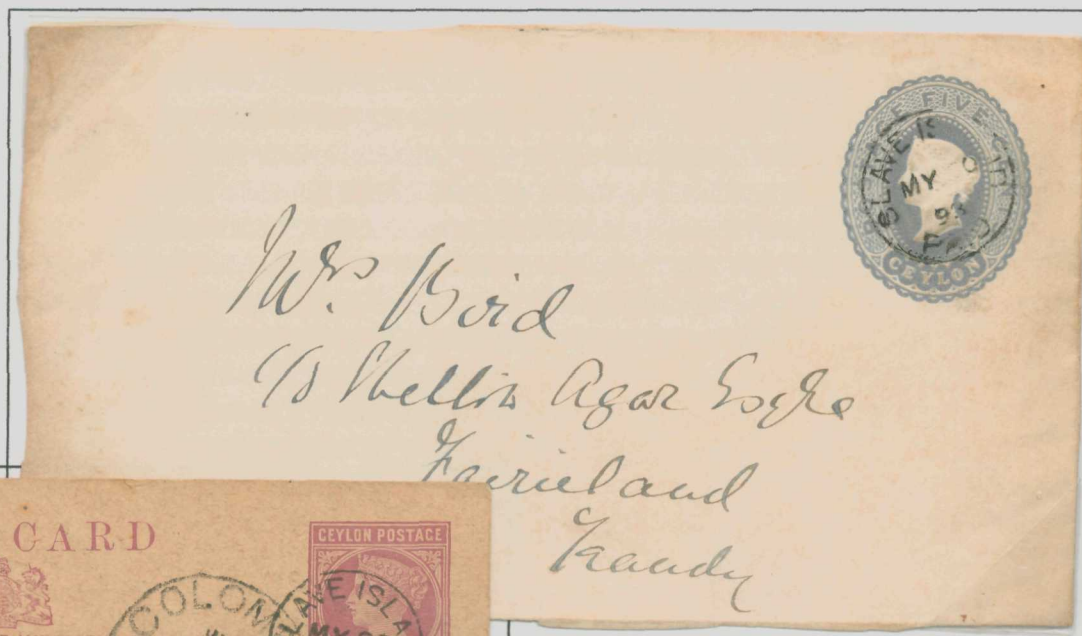 FIVE
SLAVE
MY
CEYLON
Mrs. Boid
c/o Shelton Agar Esqre
Fairieland
Kandy
CARD
CEYLON POSTAGE
COLOM
SLAVE ISLA
MY